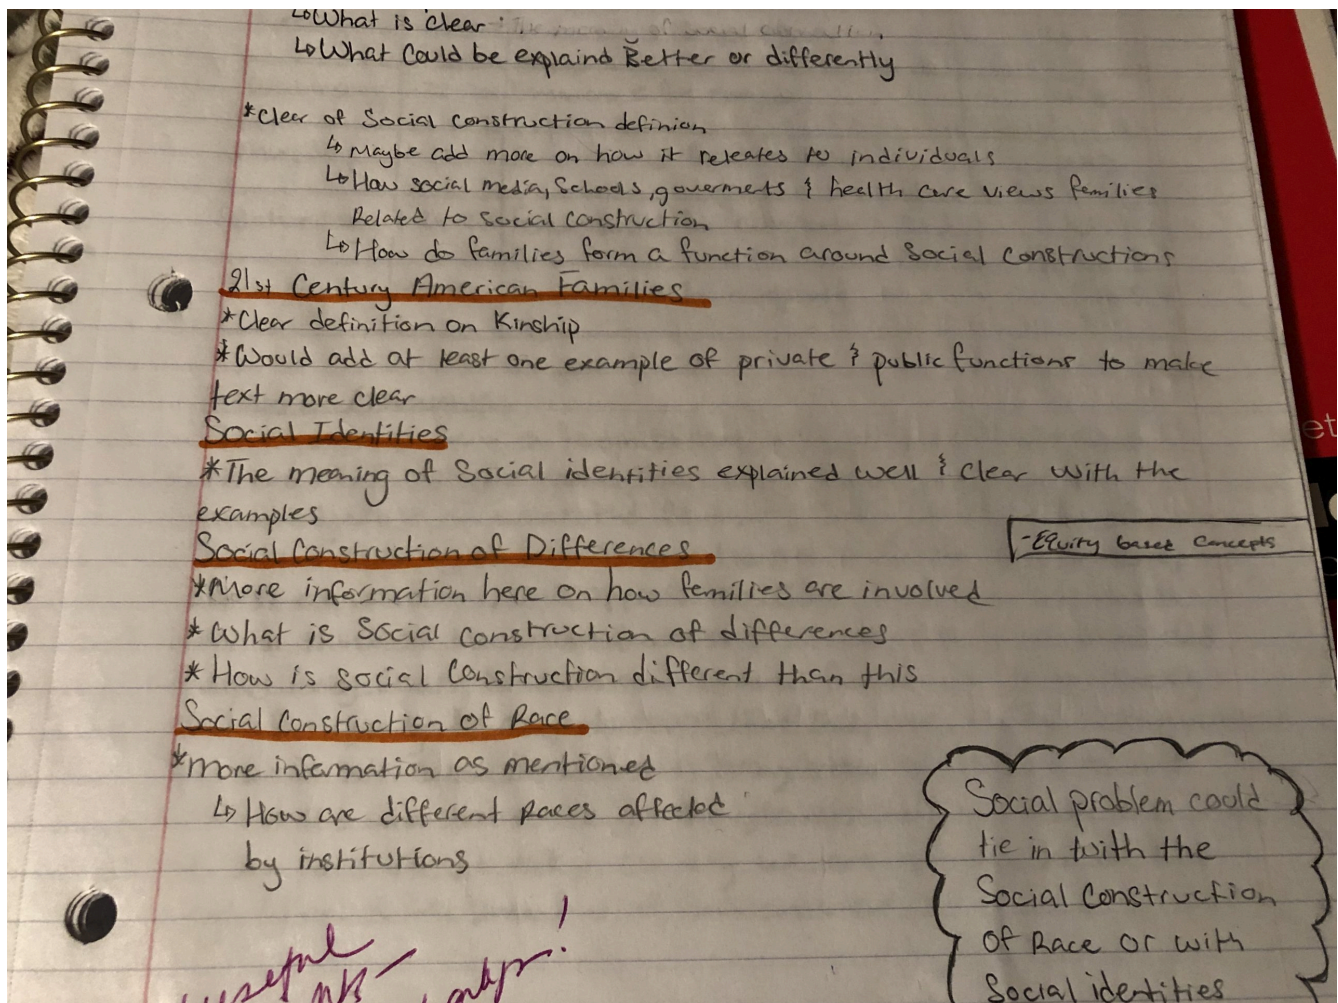 ↳What is clear :
↳What Could be explaind Better or differently
*Clear of Social Construction definion
↳ Maybe add more on how it releates to individuals
↳How social media, Schools, goverments & health care views families
Related to social construction
↳How do families form a function around Social Constructions
21st Century American Families
*Clear definition on Kinship
*Would add at least one example of private & public functions to make
text more clear
Social Identities
*The meaning of Social identities explained well & clear with the
examples
Social Construction of Differences
-Equity based concepts
*More information here on how families are involved
*What is Social construction of differences
*How is social Construction different than this
Social Construction of Race
*more information as mentioned
↳ How are different Races affected
by institutions
Social problem could
tie in with the
Social Construction
Of Race or with
Social identities
useful
et